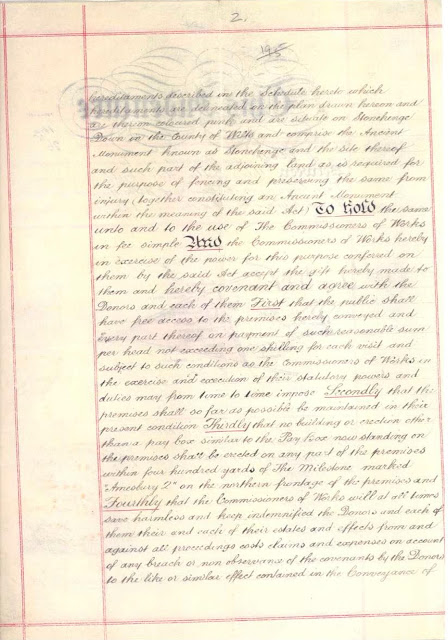 2.
195
hereditaments described in the Schedule hereto which
hereditaments are delineated on the plan drawn hereon and
are thereon coloured pink and are situate on Stonehenge
Down in the County of Wilts and comprise the Ancient
Monument known as Stonehenge and the site thereof
and such part of the adjoining land as is required for
the purpose of fencing and preserving the same from
injury (together constituting an Ancient Monument
within the meaning of the said Act) To Hold the same
unto and to the use of The Commissioners of Works
in fee simple And the Commissioners of Works hereby
in exercise of the power for this purpose conferred on
them by the said Act accept the gift hereby made to
them and hereby covenant and agree with the
Donors and each of them First that the public shall
have free access to the premises hereby conveyed and
every part thereof on payment of such reasonable sum
per head not exceeding one shilling for each visit and
subject to such conditions as the Commissioners of Works in
the exercise and execution of their statutory powers and
duties may from time to time impose Secondly that the
premises shall so far as possible be maintained in their
present condition Thirdly that no building or erection other
than a pay box similar to the Pay Box now standing on
the premises shall be erected on any part of the premises
within four hundred yards of The Milestone marked
"Amesbury 2" on the northern frontage of the premises and
Fourthly that the Commissioners of Works will at all times
save harmless and keep indemnified the Donors and each of
them their and each of their estates and effects from and
against all proceedings costs claims and expenses on account
of any breach or non observance of the covenants by the Donors
to the like or similar effect contained in the Conveyance of